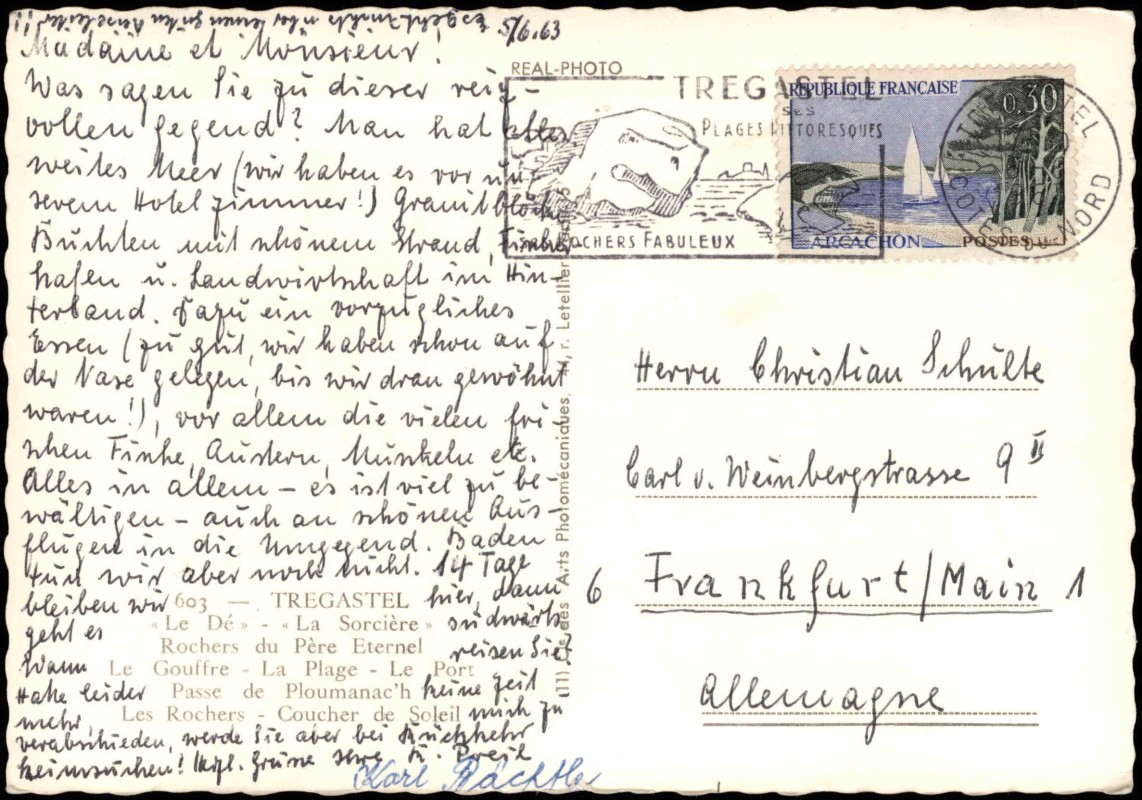 Es geht nichts über einen guten Reiseleiter!!
5/6.63
Madame et Monsieur!
Was sagen Sie zu dieser reiz-
vollen Gegend? Man hat alles
weites Meer (wir haben es vor un-
serem Hotelzimmer!) Granitblöcke
Buchten mit schönem Strand, Fischer-
hafen u. Landwirtschaft im Hin-
terland. Dazu ein vorzügliches
Essen (zu gut, wir haben schon auf
der Nase gelegen, bis wir dran gewöhnt
waren!), vor allem die vielen fri
schen Fische, Austern, Muscheln etc.
Alles in allem – es ist viel zu be-
wältigen – auch an schönen Aus-
flügen in die Umgegend. Baden
tun wir aber noch nicht. 14 Tage
bleiben wir hier, dann
geht es südwärts
Wann reisen Sie?
Hatte leider keine Zeit
mehr, mich zu
verabschieden, werde Sie aber bei Rückkehr
heimsuchen! Herzl. Grüße Ihre
Karl Bächtle
603 — TREGASTEL
«Le Dé» - «La Sorcière»
Rochers du Père Eternel
Le Gouffre - La Plage - Le Port
Passe de Ploumanac'h
Les Rochers - Coucher de Soleil
des Arts Photomécaniques, r. Letellier
REAL-PHOTO
TREGASTEL
SES
PLAGES PITTORESQUES
ROCHERS FABULEUX
RÉPUBLIQUE FRANÇAISE
0,30
ARCACHON
POSTES
COTES DU NORD
Herrn Christian Schulte
Carl v. Weinbergstrasse 9 II
6 Frankfurt/Main 1
Allemagne